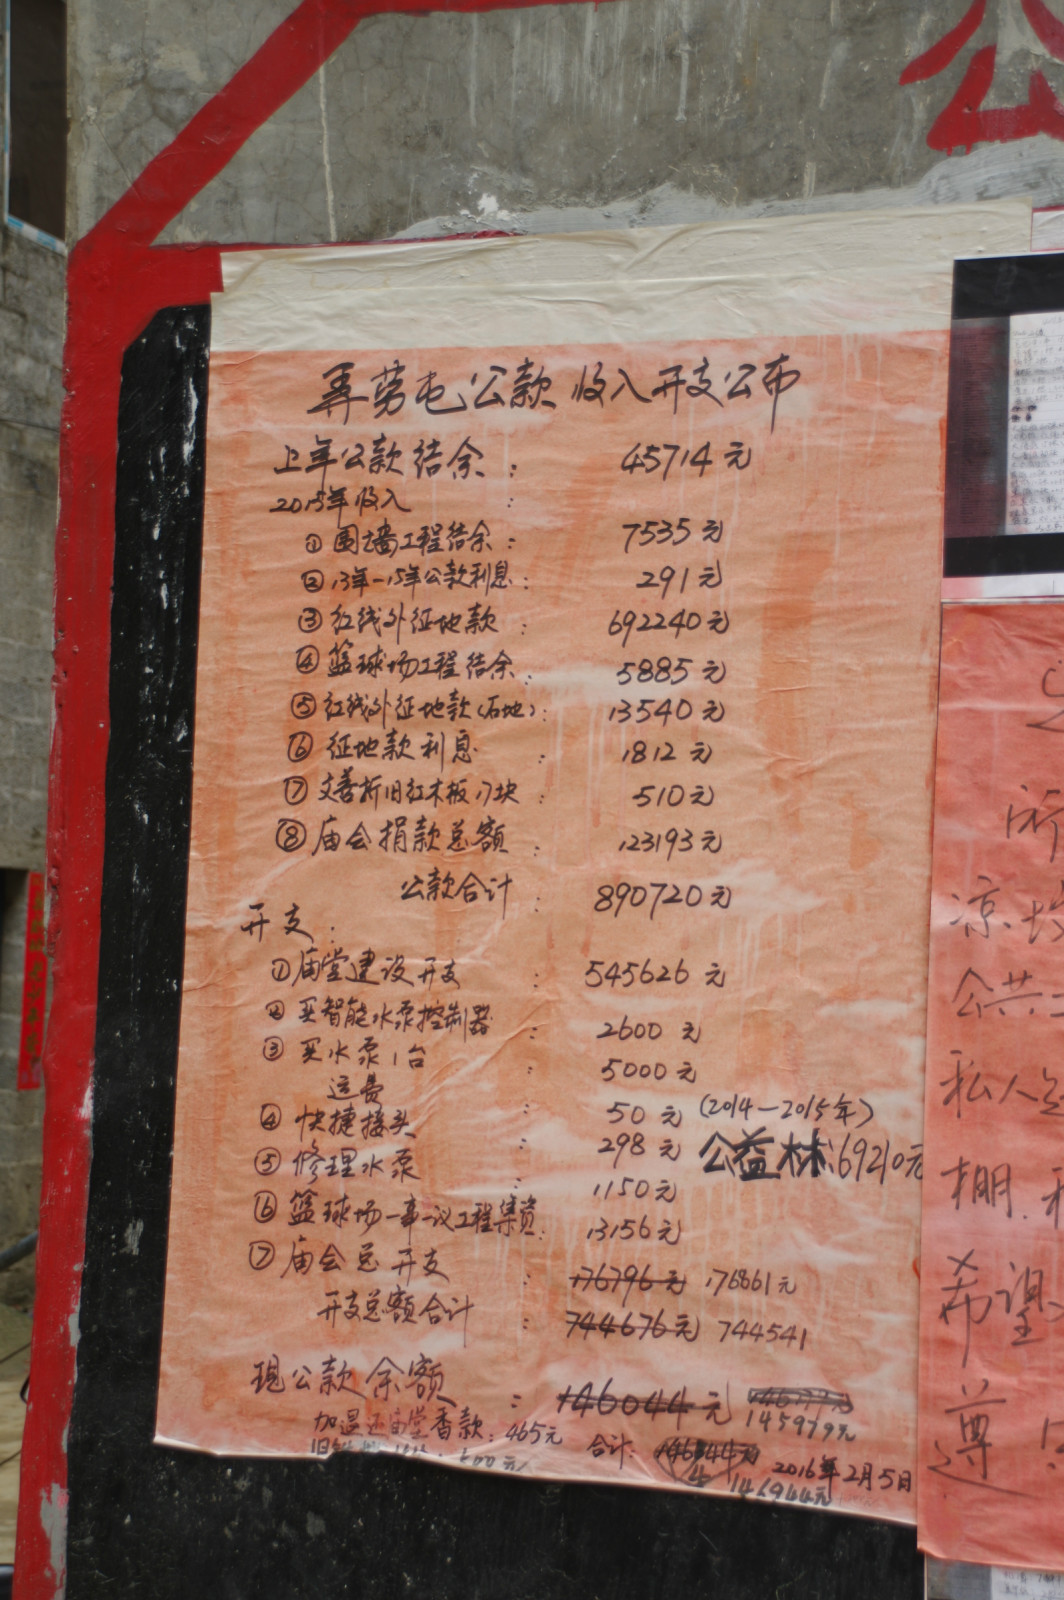 公
弄劳屯公款收入开支公布
上年公款结余： 45714元
2015年收入：
①围墙工程结余： 7535元
②13年-15年公款利息： 291元
③红线外征地款： 692240元
④篮球场工程结余： 5885元
⑤红线外征地款(石地)： 13540元
⑥征地款利息： 1812元
⑦交善折旧红木板17块： 510元
⑧庙会捐款总额： 123193元
公款合计： 890720元
开支：
①庙堂建设开支： 545626元
②买智能水泵控制器： 2600元
③买水泵1台： 5000元
运费： 50元 (2014-2015年)
④快捷接头： 298元 公益林:69210元
⑤修理水泵： 1150元
⑥篮球场一事一议工程集资： 13156元
⑦庙会总开支： 176796元 176861元
开支总额合计： 744676元 744541
现公款余额： 146044元
145979元
加退还庙堂香款：465元 合计：
600元 2016年2月5日
146944元
所
凉
公共
私人
棚.
希望
尊！